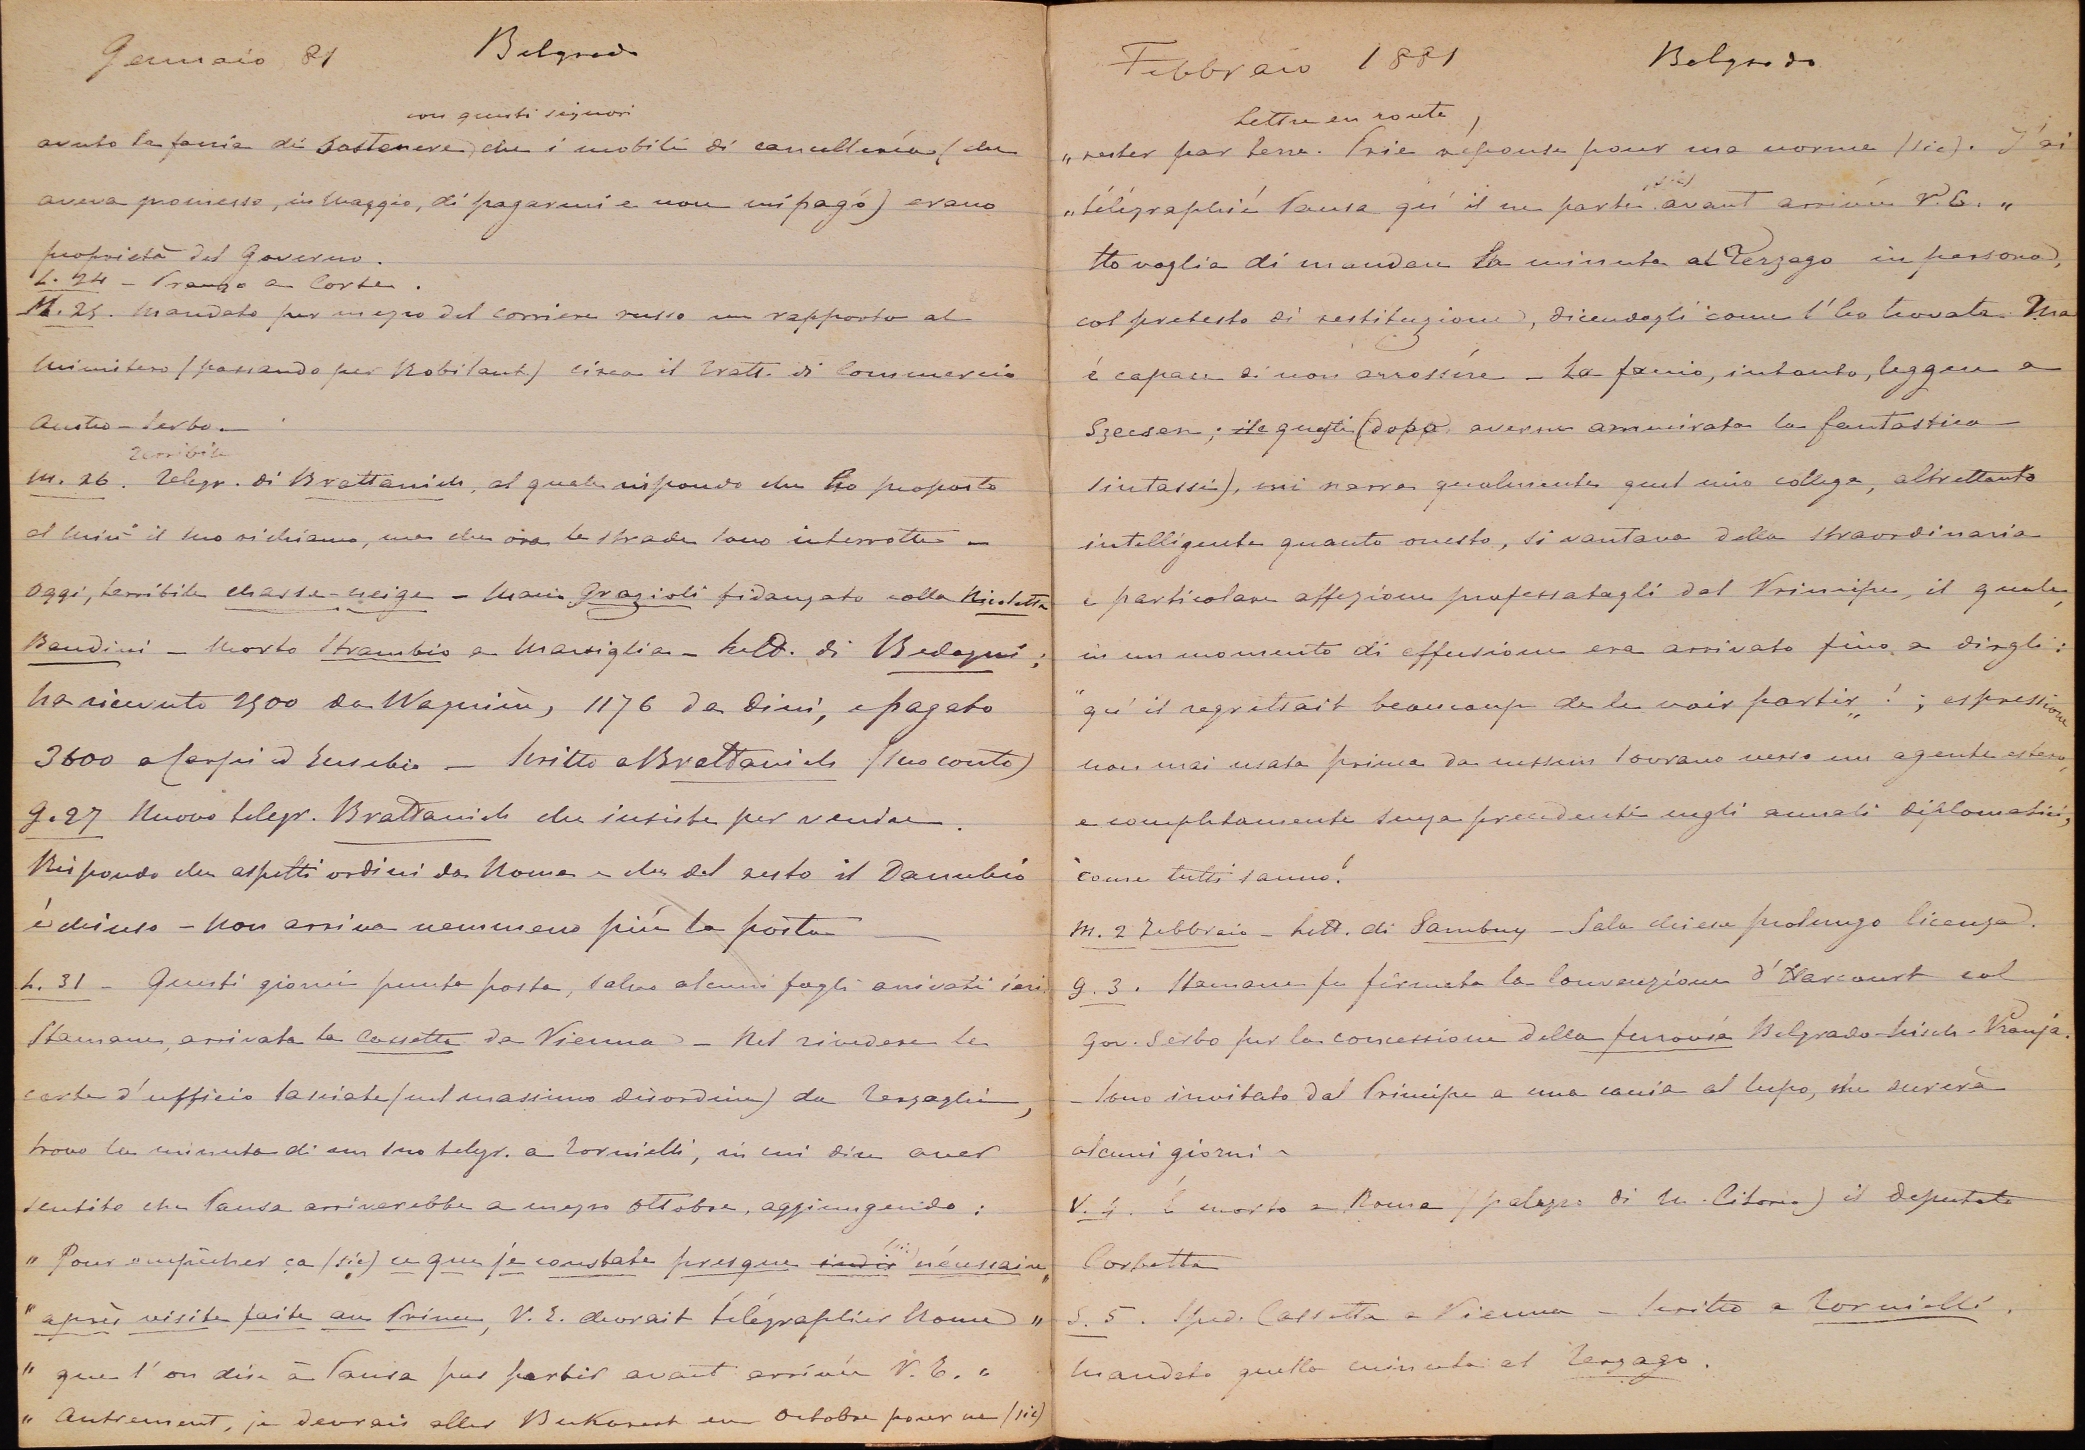 Gennaio 81 Belgrado
con questi signori
avuto la fania di sostenere che i mobili di cancelleria (che
aveva promesso, in Maggio, di pagarmi e non mi pagó) erano
proprietà del Governo.
L. 24 - Pranzo a Corte.
M. 25. Mandato per mezzo del corriere russo un rapporto al
Ministero (passando per Robilant) circa il Tratt. di Commercio
Austro-Serbo.-
Terribile
M. 26. Telegr. di Brattanich, al quale rispondo che ho proposto
al Min° il suo richiamo, ma che ora le strade sono interrotte -
Oggi, terribile chasse-neige - Mario Grazioli fidanzato colla Nicoletta
Bandini - Morto Strambio a Marsiglia - Lett. di Bedogni;
ha ricevuto 2500 da Wagnière, 1176 da Dini, e pagato
3600 a Carpi ed Eusebio - Scritto a Brattanich (suo conto)
G. 27 Nuovo telegr. Brattanich che insiste per venire.
Rispondo che aspetti ordini da Roma e che del resto il Danubio
é chiuso - Non arriva nemmeno piú la posta -
L. 31 - Questi giorni punta posta, salvo alcuni fogli arrivati ieri.
Stamane, arrivata la cassetta da Vienna - Nel rivedere le
carte d'ufficio lasciate (nel massimo disordine) da Terzaghi,
trovo la minuta di un suo telegr. a Tornielli, in cui dice aver
sentito che Pansa arriverebbe a mezzo ottobre, aggiungendo:
" Pour empêcher ça (sic) ce que je constate presque indis (sic) nécessaire "
" après visite faite au Prince, V. E. devrait télégraphier Rome "
" que l'on dise à Pansa pas partir avant arrivée V. E. "
" Autrement, je devrais aller Bukarest en octobre pour ne (sic)
Febbraio 1881 Belgrado
lettre en route,
" rester par terre. Prie réponse pour ma norme (sic). J'ai
" télégraphié Pansa qu'il ne parte (sic) avant arrivée V. E. "
Ho voglia di mandare la minuta al Terzago in persona,
col pretesto di restituzione, dicendogli come l'ho trovata. Ma
é capace di non arrossire - La faccio, intanto, leggere a
Szecsen; il questi (dopo averne ammirata la fantastica
sintassi), mi narra qualmente quel mio collega, altrettanto
intelligente quanto onesto, si vantava della straordinaria
e particolare affezione professatagli dal Principe, il quale,
in un momento di effusione era arrivato fino a dirgli:
"qu'il regrettait beaucoup de le voir partir"!; espressione
non mai usata prima da nessun sovrano verso un agente estero,
e completamente senza precedenti negli annali diplomatici,
come tutti sanno!
M. 2 Febbraio - Lett. di Sambuy - Sala chiese prolungo licenza.
G. 3. Stamane fu firmata la Convenzione d'Harcourt col
Gov. Serbo per la concessione della ferrovia Belgrado-Nisch-Vranja.
- Sono invitato dal Principe a una caccia al lupo, che durerà
alcuni giorni -
V. 4. É morto a Roma (palazzo di M. Citorio) il deputato
Corbetta
S. 5. Sped. Cassetta a Vienna - Scritto a Tornielli.
Mandato quella minuta al Terzago.